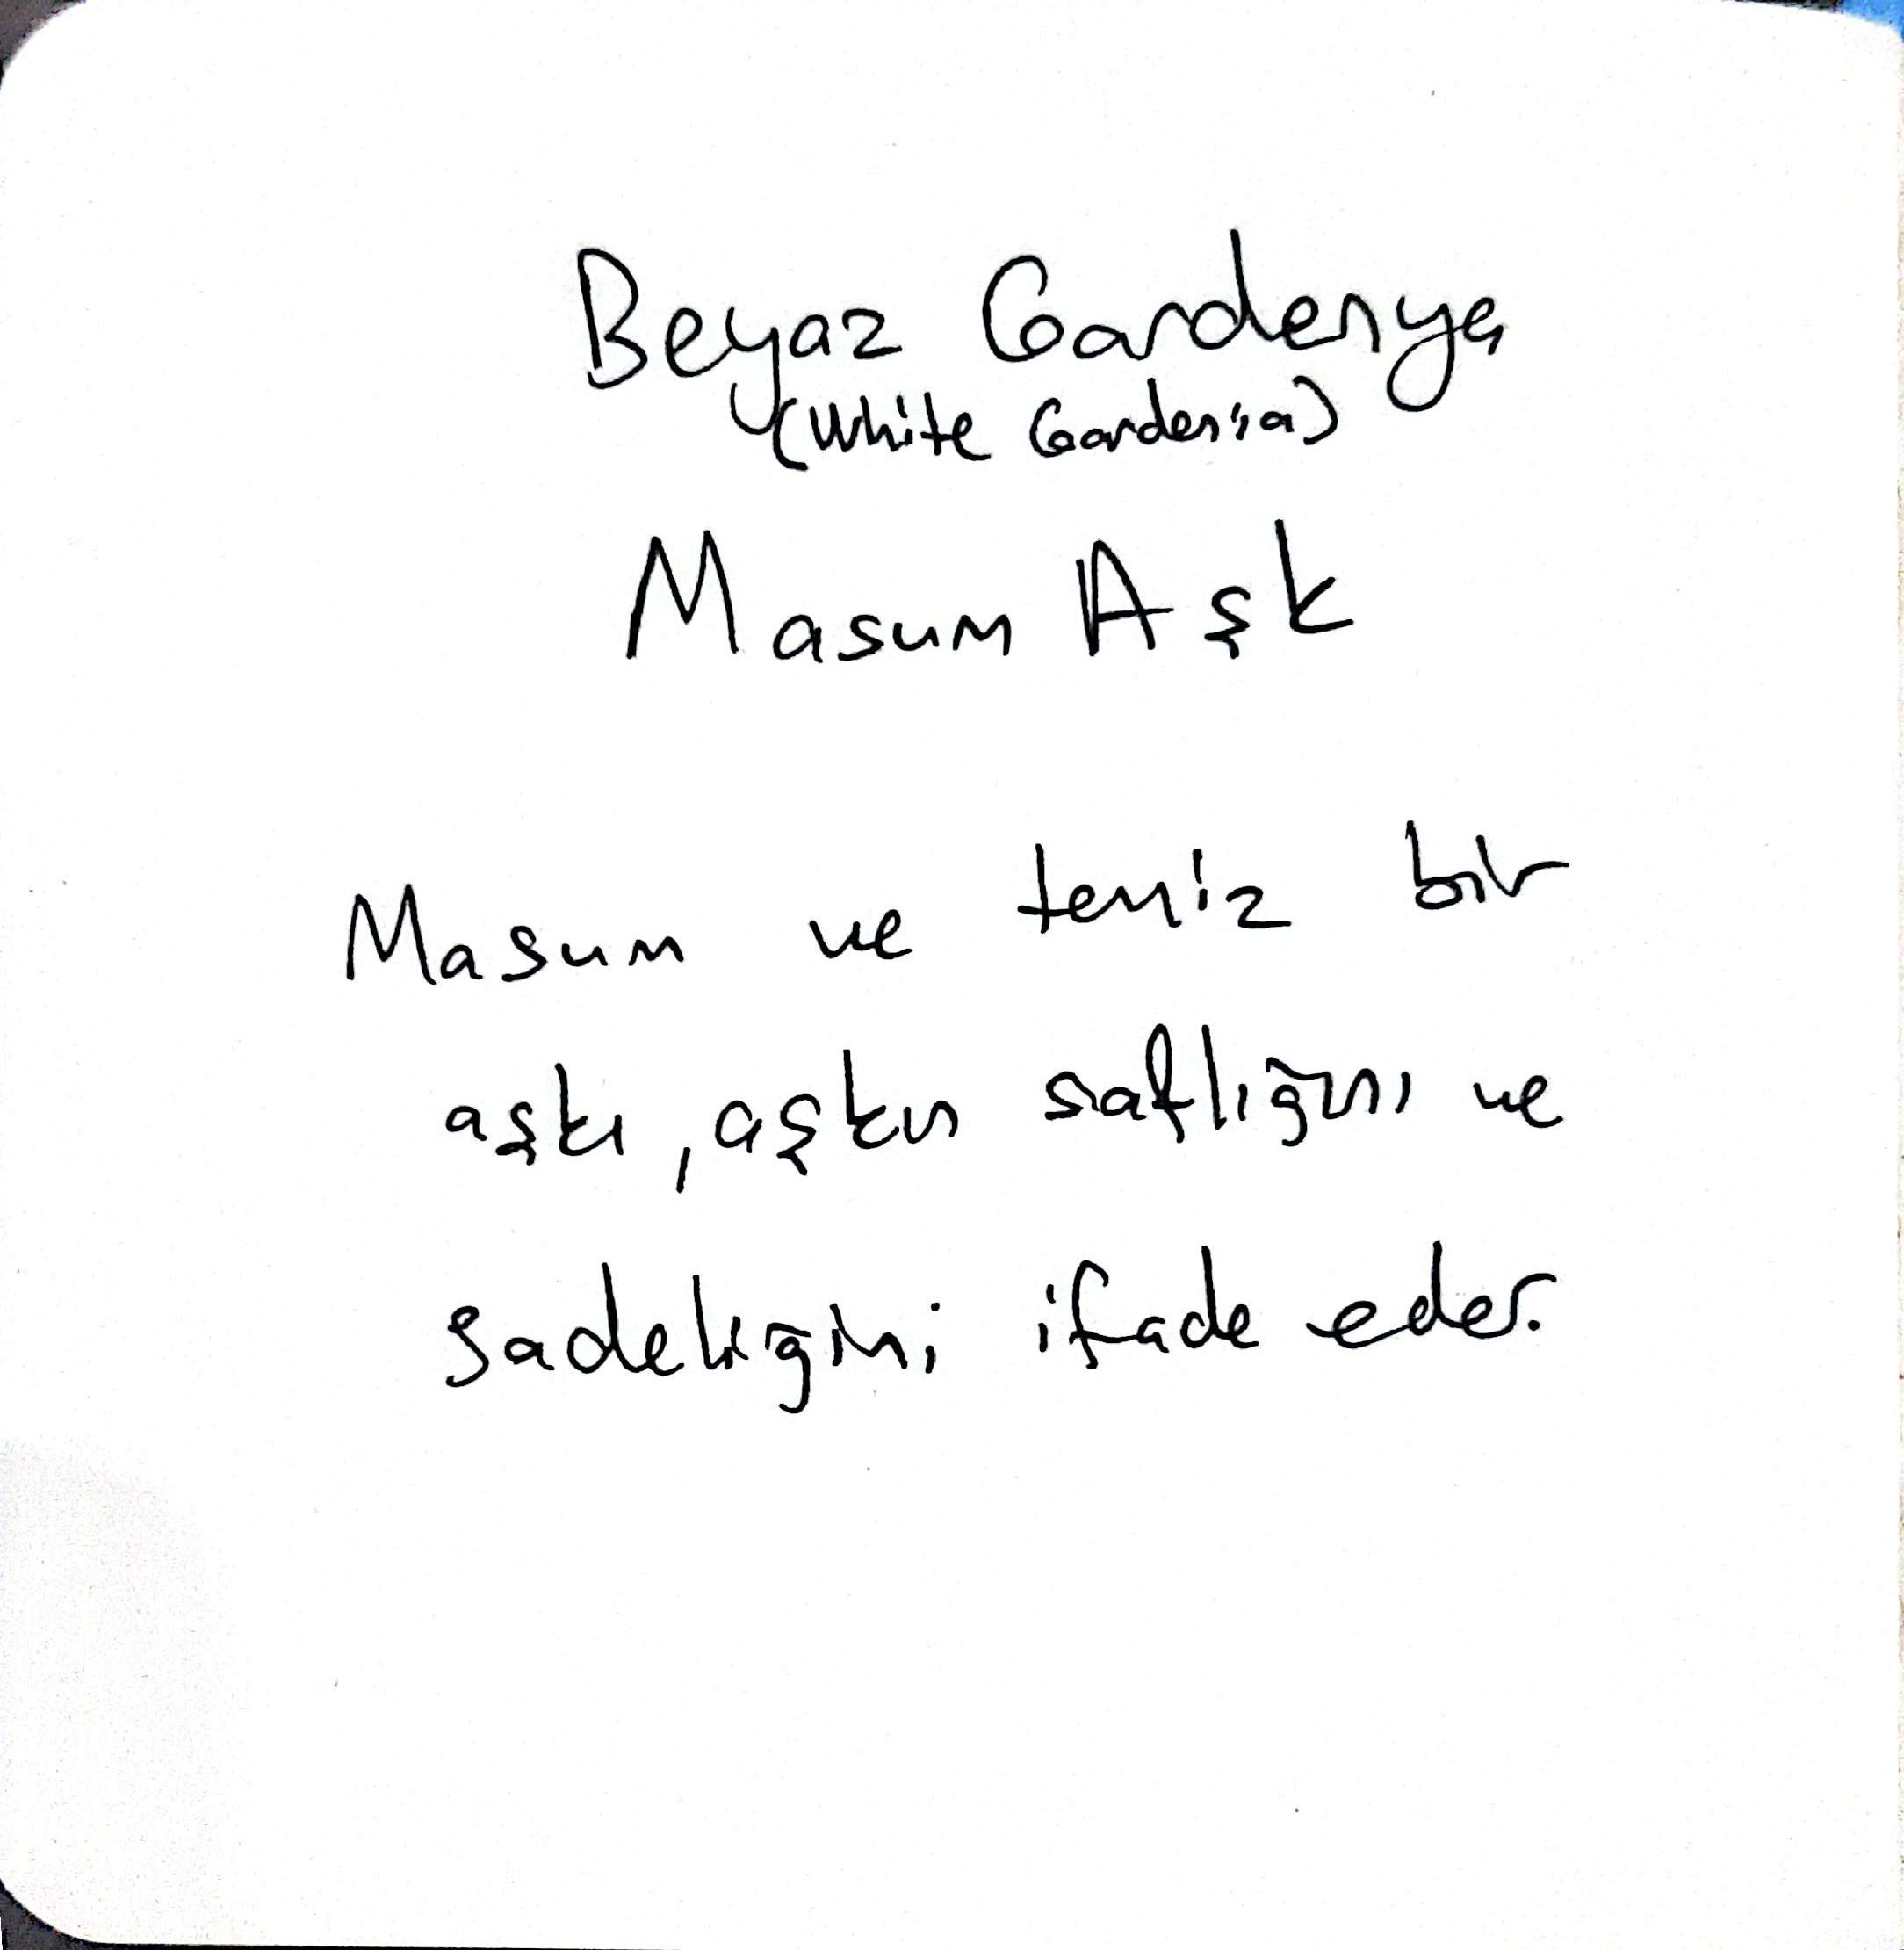 Beyaz Gardenya
(White Gardenia)
Masum Aşk
Masum ve temiz bir
aşkı, aşkın saflığını ve
sadeliğini ifade eder.